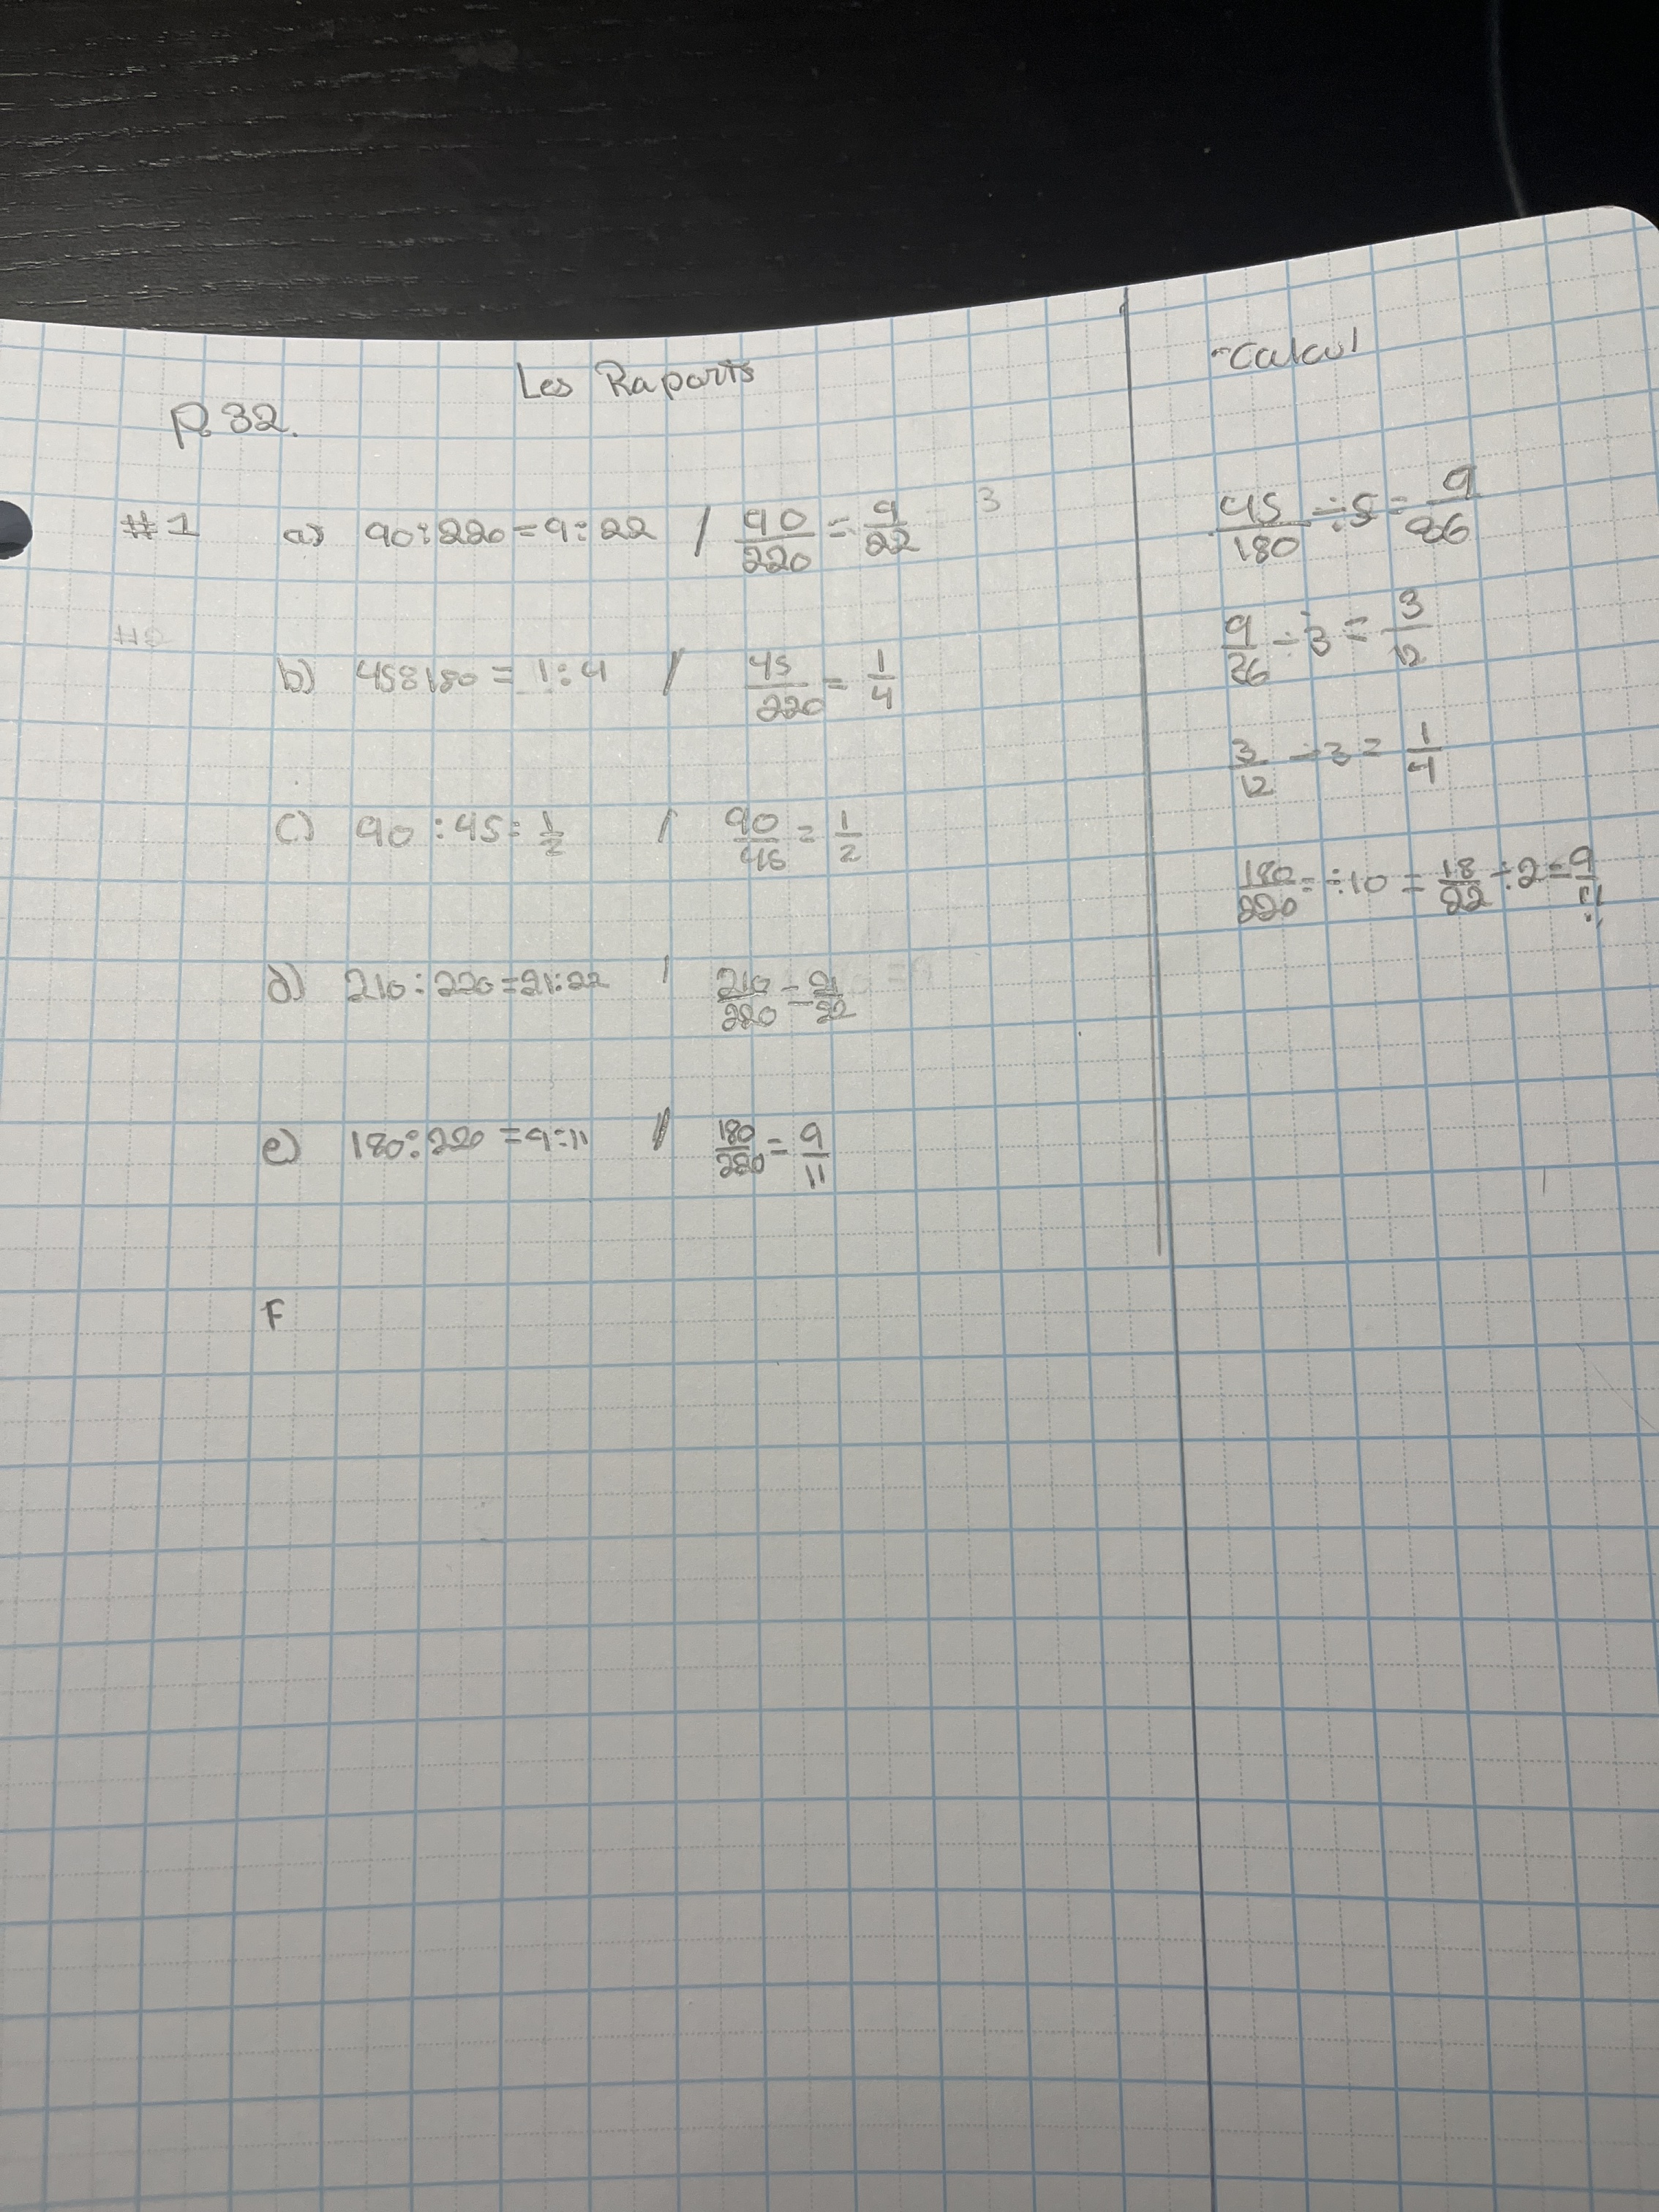 Les Raports
P. 32.
#1 a) 90:220 = 9:22 / 90/220 = 9/22 3
#2
b) 45:180 = 1:4 / 45/220 = 1/4
c) 90:45 = 1/2 / 90/45 = 1/2
d) 210:220 = 21:22 / 210/220 = 21/22
e) 180:220 = 9:11 / 180/220 = 9/11
F
-Calcul
45/180 ÷ 5 = 9/36
9/26 ÷ 3 = 3/12
3/12 ÷ 3 = 1/4
180/220 = ÷10 = 18/22 ÷ 2 = 9/11